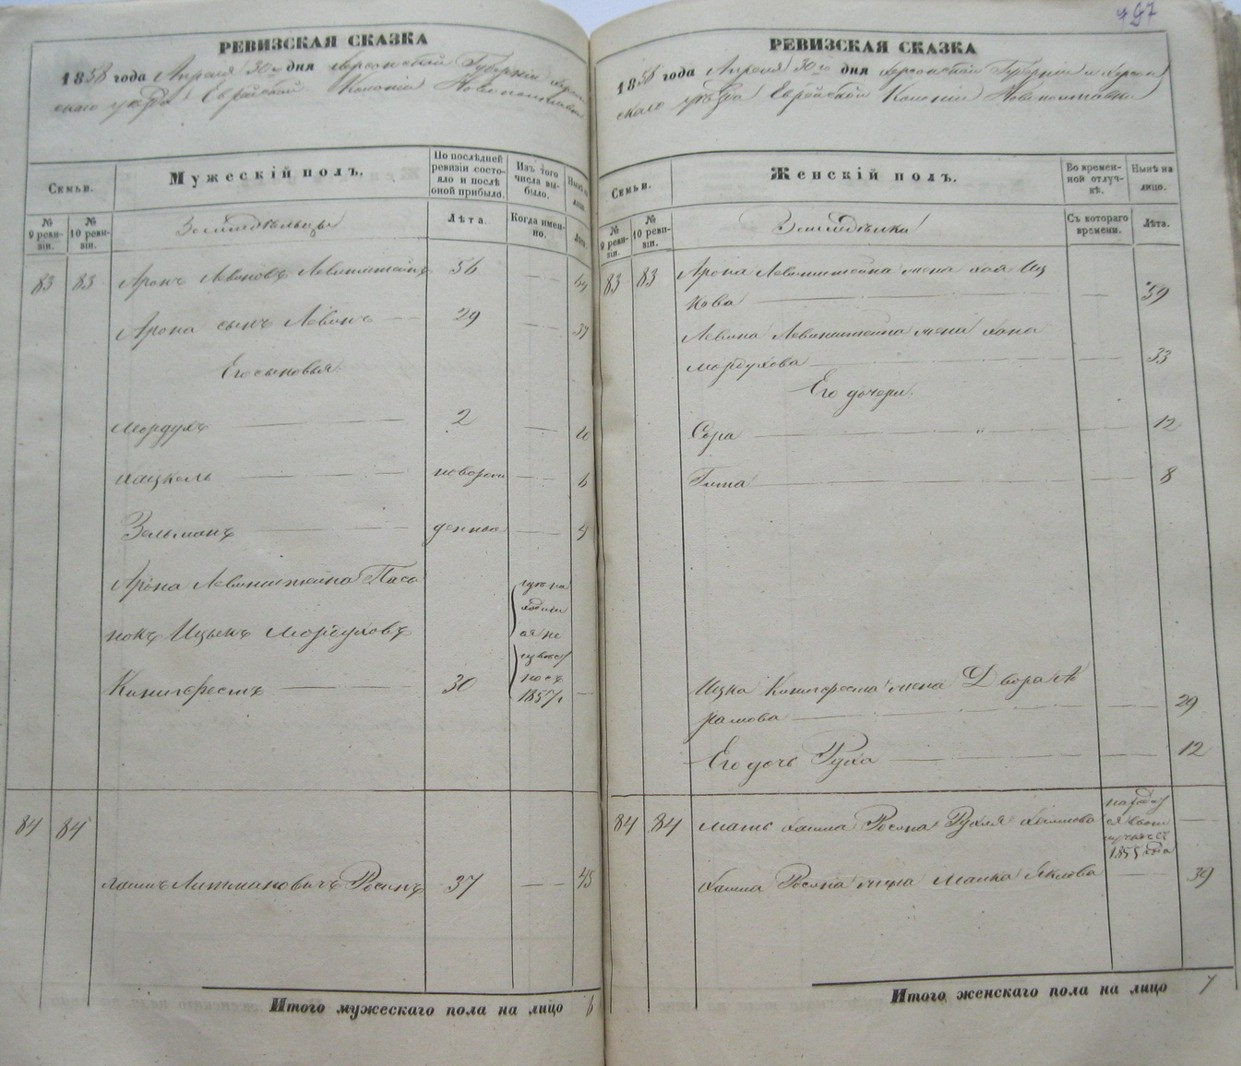 РЕВИЗСКАЯ СКАЗКА
1858 года Апреля 30го дня Херсонской Губернии Херсон
скаго уезда Еврейской Колонии Новополтавки
Семьи.
№ 9 реви- зіи.
№ 10 реви- зіи.
Мужескій полъ.
По последней ревизіи состо- яло и после оной прибыло.
Изъ того числа вы- было.
Лѣта.
Когда имен- но.
Земледѣльцы
83 83 Аронъ Левиновъ Левинштейнъ 54
Арона сынъ Левинъ 29
Его сыновья
Мордухъ 2 10
Хацкель новорож 6
Зельманъ 4
Арона Левинштейна Паса
нокъ Ицыкъ Мордуховъ
Кенигсрестъ 30 1857
84 84
Хаимъ Литманович Росинъ 37 45
Итого мужескаго пола на лицо 6
797
РЕВИЗСКАЯ СКАЗКА
1858 года Апреля 30го дня Херсонской Губернии и Херсон
скаго уезда Еврейской Колонии Новополтавки
Семьи.
№ 9 реви- зіи.
№ 10 реви- зіи.
Женскій полъ.
Во времен- ной отлуч- кѣ.
Нынѣ на лицо.
Съ котораго времени.
Лѣта.
Земледѣлки
83 83 Арона Левинштейна жена Хая Иц
кова 59
Левина Левинштейна жена Хана
Мордухова 33
Его дочери
Сора 12
Гита 8
Ицка Кенигсреста жена Двора Аб
рамова 29
Его дочь Руха 12
84 84 Мать Хаима Росина Рухля Хаимова
1855 года
Хаима Росина жена Малка Яклова 39
Итого женскаго пола на лицо 7